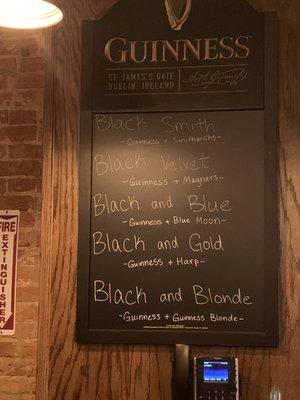 GUINNESS
ST. JAMES'S GATE
DUBLIN, IRELAND
Black Smith
-Guinness + Smithwicks-
Black Velvet
-Guinness + Magners-
Black and Blue
-Guinness + Blue Moon-
Black and Gold
-Guinness + Harp-
Black and Blonde
-Guinness + Guinness Blonde-
FIRE
EXTINGUISHER